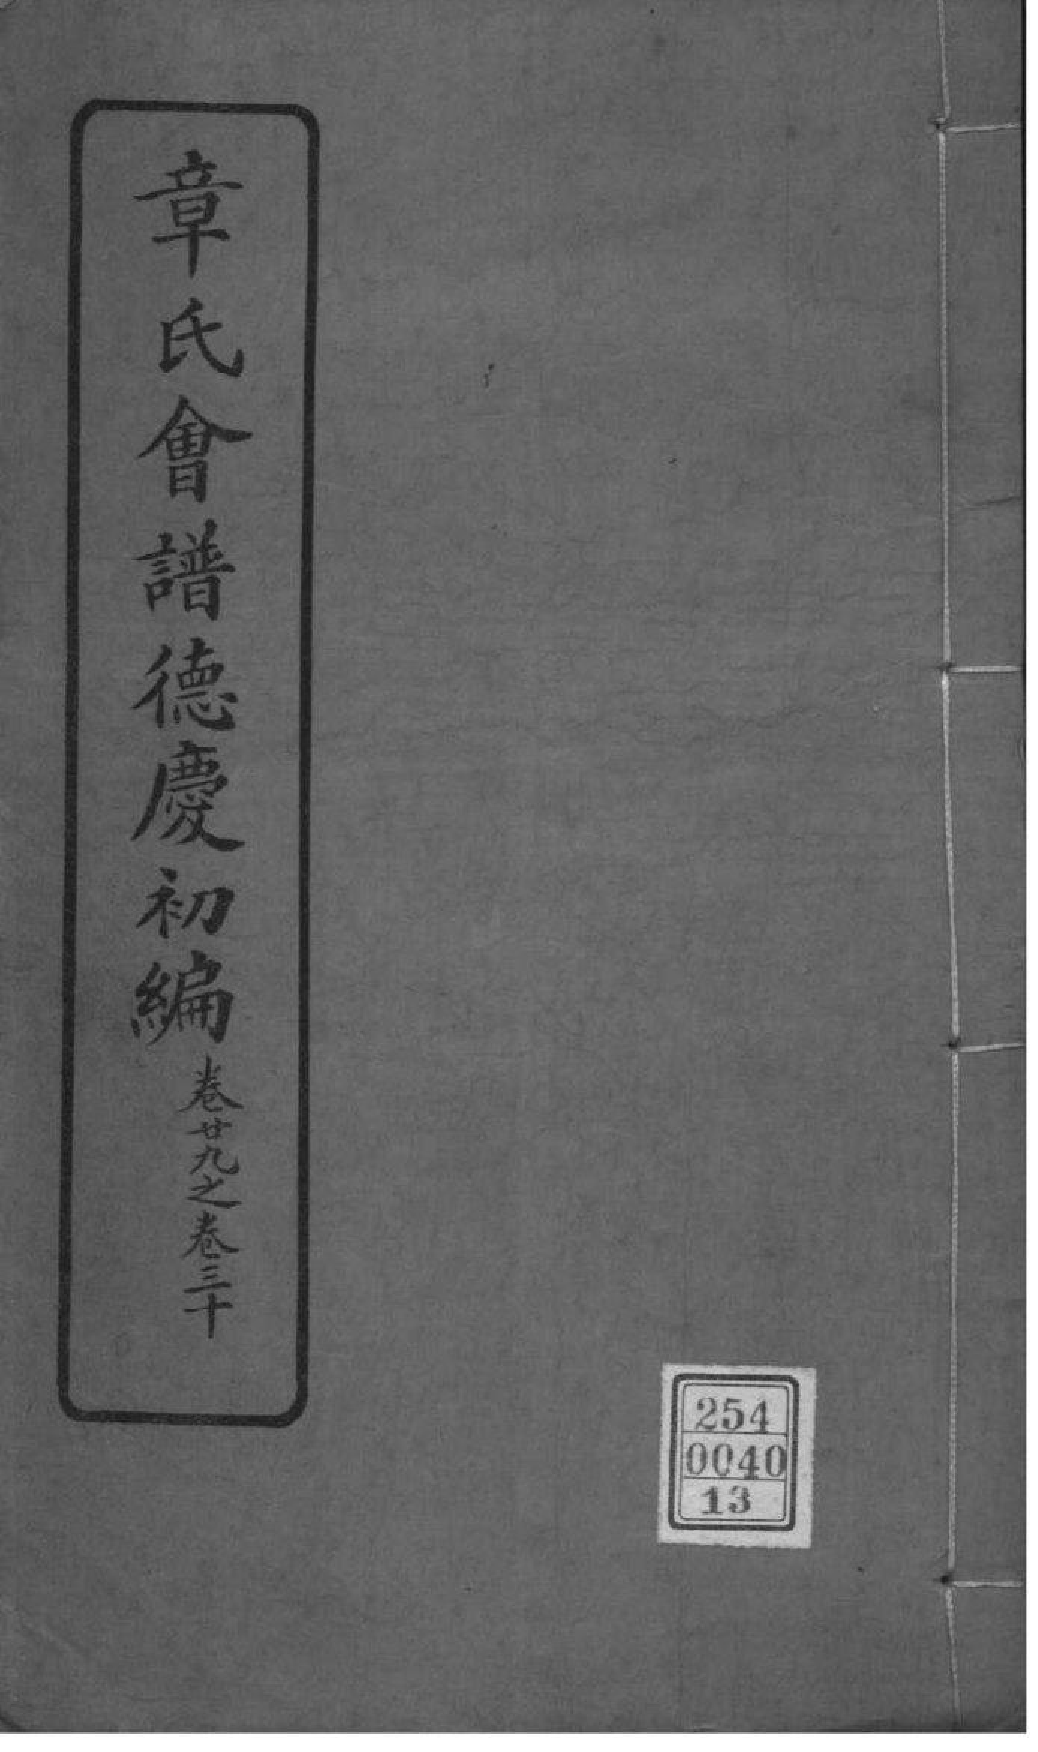 章氏會譜德慶初編
卷廿九之卷三十
254
0040
13